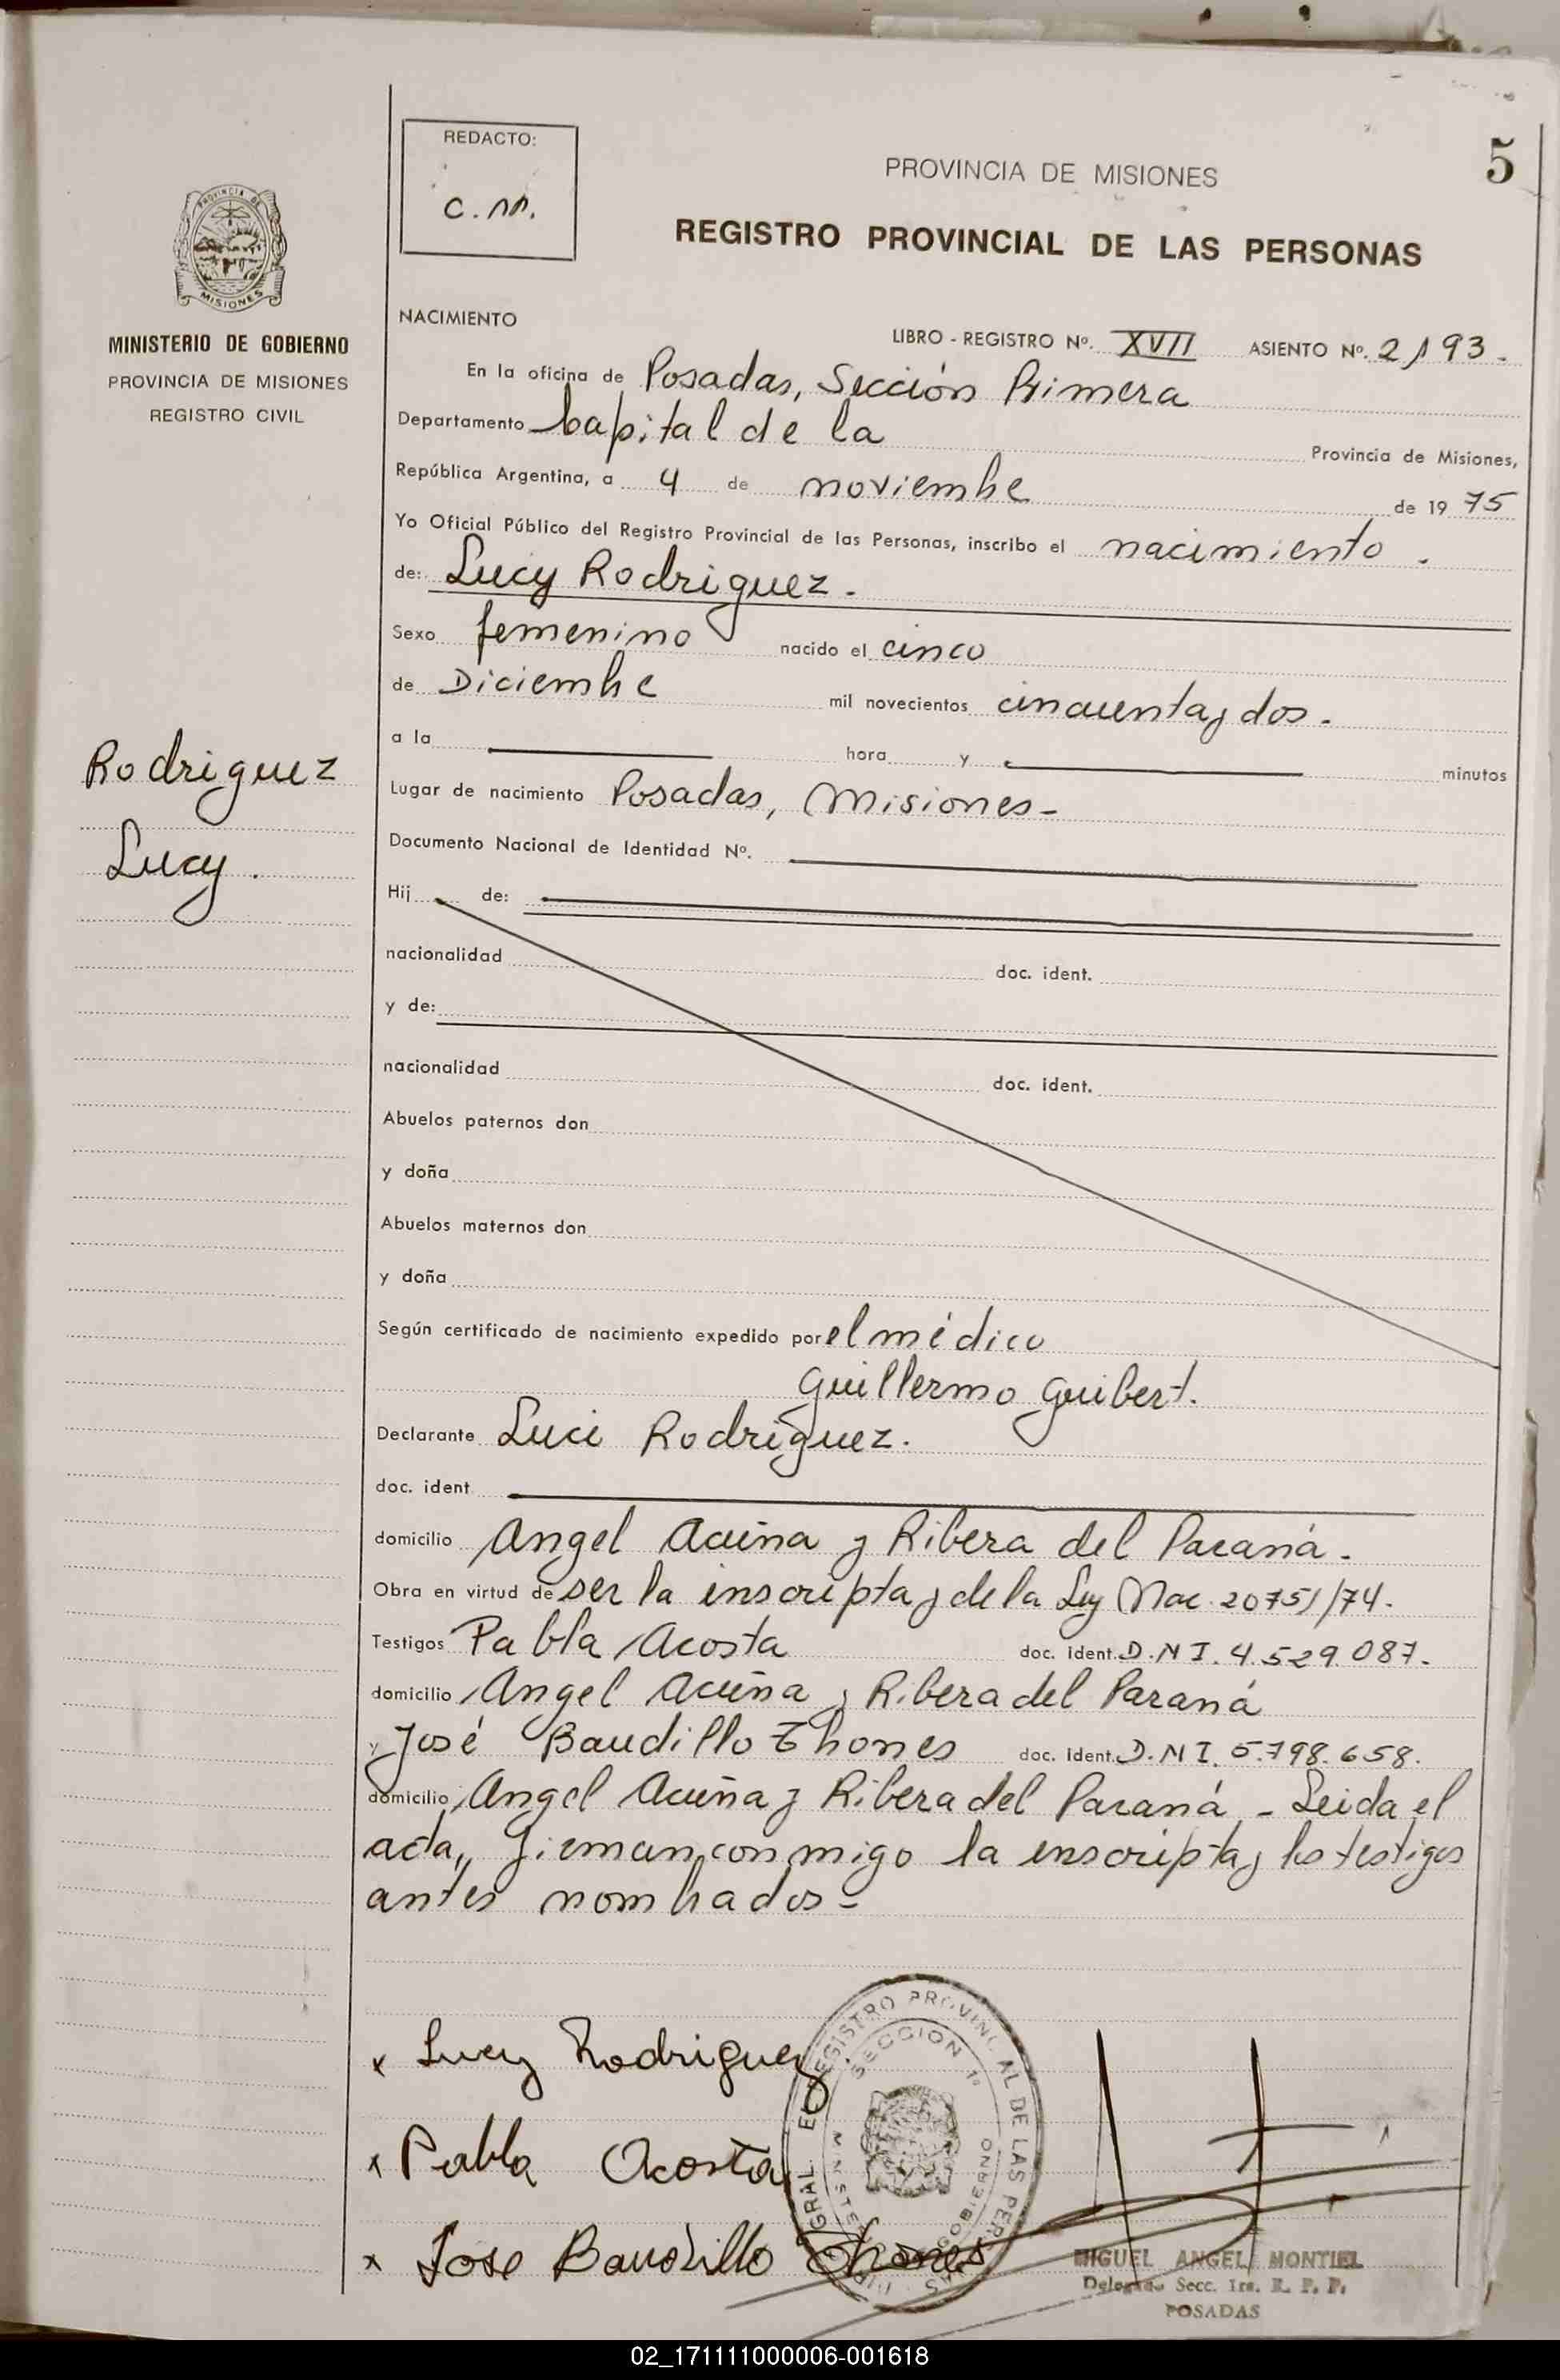 5
REDACTO:
C.M.
PROVINCIA DE MISIONES
REGISTRO PROVINCIAL DE LAS PERSONAS
PROVINCIA DE
MISIONES
MINISTERIO DE GOBIERNO
PROVINCIA DE MISIONES
REGISTRO CIVIL
Rodriguez
Lucy.
NACIMIENTO
LIBRO - REGISTRO Nº. XVII ASIENTO Nº. 2193.
En la oficina de Posadas, Sección Primera
Departamento Capital de la Provincia de Misiones,
República Argentina, a 4 de noviembre de 1975
Yo Oficial Público del Registro Provincial de las Personas, inscribo el nacimiento.
de: Lucy Rodriguez.
Sexo femenino nacido el cinco
de Diciembre mil novecientos cincuenta y dos.
a la hora y minutos
Lugar de nacimiento Posadas, Misiones-
Documento Nacional de Identidad Nº.
Hij de:
nacionalidad doc. ident.
y de:
nacionalidad doc. ident.
Abuelos paternos don
y doña
Abuelos maternos don
y doña
Según certificado de nacimiento expedido por el médico
Guillermo Guibert.
Declarante Luci Rodriguez.
doc. ident
domicilio Angel Acuña y Ribera del Paraná.
Obra en virtud de ser la inscripta y de la Ley Nac. 20751/74.
Testigos Pabla Acosta doc. ident. D.N I. 4.529.087.
domicilio Angel Acuña y Ribera del Paraná
y José Baudillo Thones doc. ident. D.N I. 5.798.658.
domicilio Angel Acuña y Ribera del Paraná - Leida el
acta, firman conmigo la inscripta y los testigos
antes nombrados-
x Lucy Rodriguez
x Pabla Acosta
x Jose Baudillo Thones
REGISTRO PROVINCIAL DE LAS PER
SECCION 1ª
MINISTE
GOBIERNO
GRAL
MIGUEL ANGEL MONTIEL
Delegado Secc. 1ra. R. P. P.
POSADAS
02_171111000006-001618